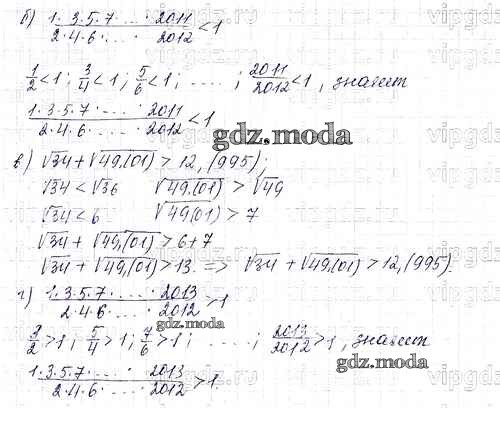 б) 1·3·5·7· ... · 2011 / 2·4·6· ... · 2012 < 1
1/2 < 1 ; 3/4 < 1 ; 5/6 < 1 ; ..... ; 2011/2012 < 1 , значит
1·3·5·7· ... · 2011 / 2·4·6· ... · 2012 < 1
gdz.moda
в) √34 + √49,(01) > 12,(995);
√34 < √36   √49,(01) > √49
√34 < 6   √49(01) > 7
√34 + √49,(01) > 6+7
√34 + √49,(01) > 13. => √34 + √49,(01) > 12,(995).
г) 1·3·5·7· ... · 2013 / 2·4·6· ... · 2012 > 1
gdz.moda
3/2 > 1 ; 5/4 > 1 ; 7/6 > 1 ; ..... ; 2013/2012 > 1 , значит
gdz.moda
1·3·5·7· ... · 2013 / 2·4·6· ... · 2012 > 1.